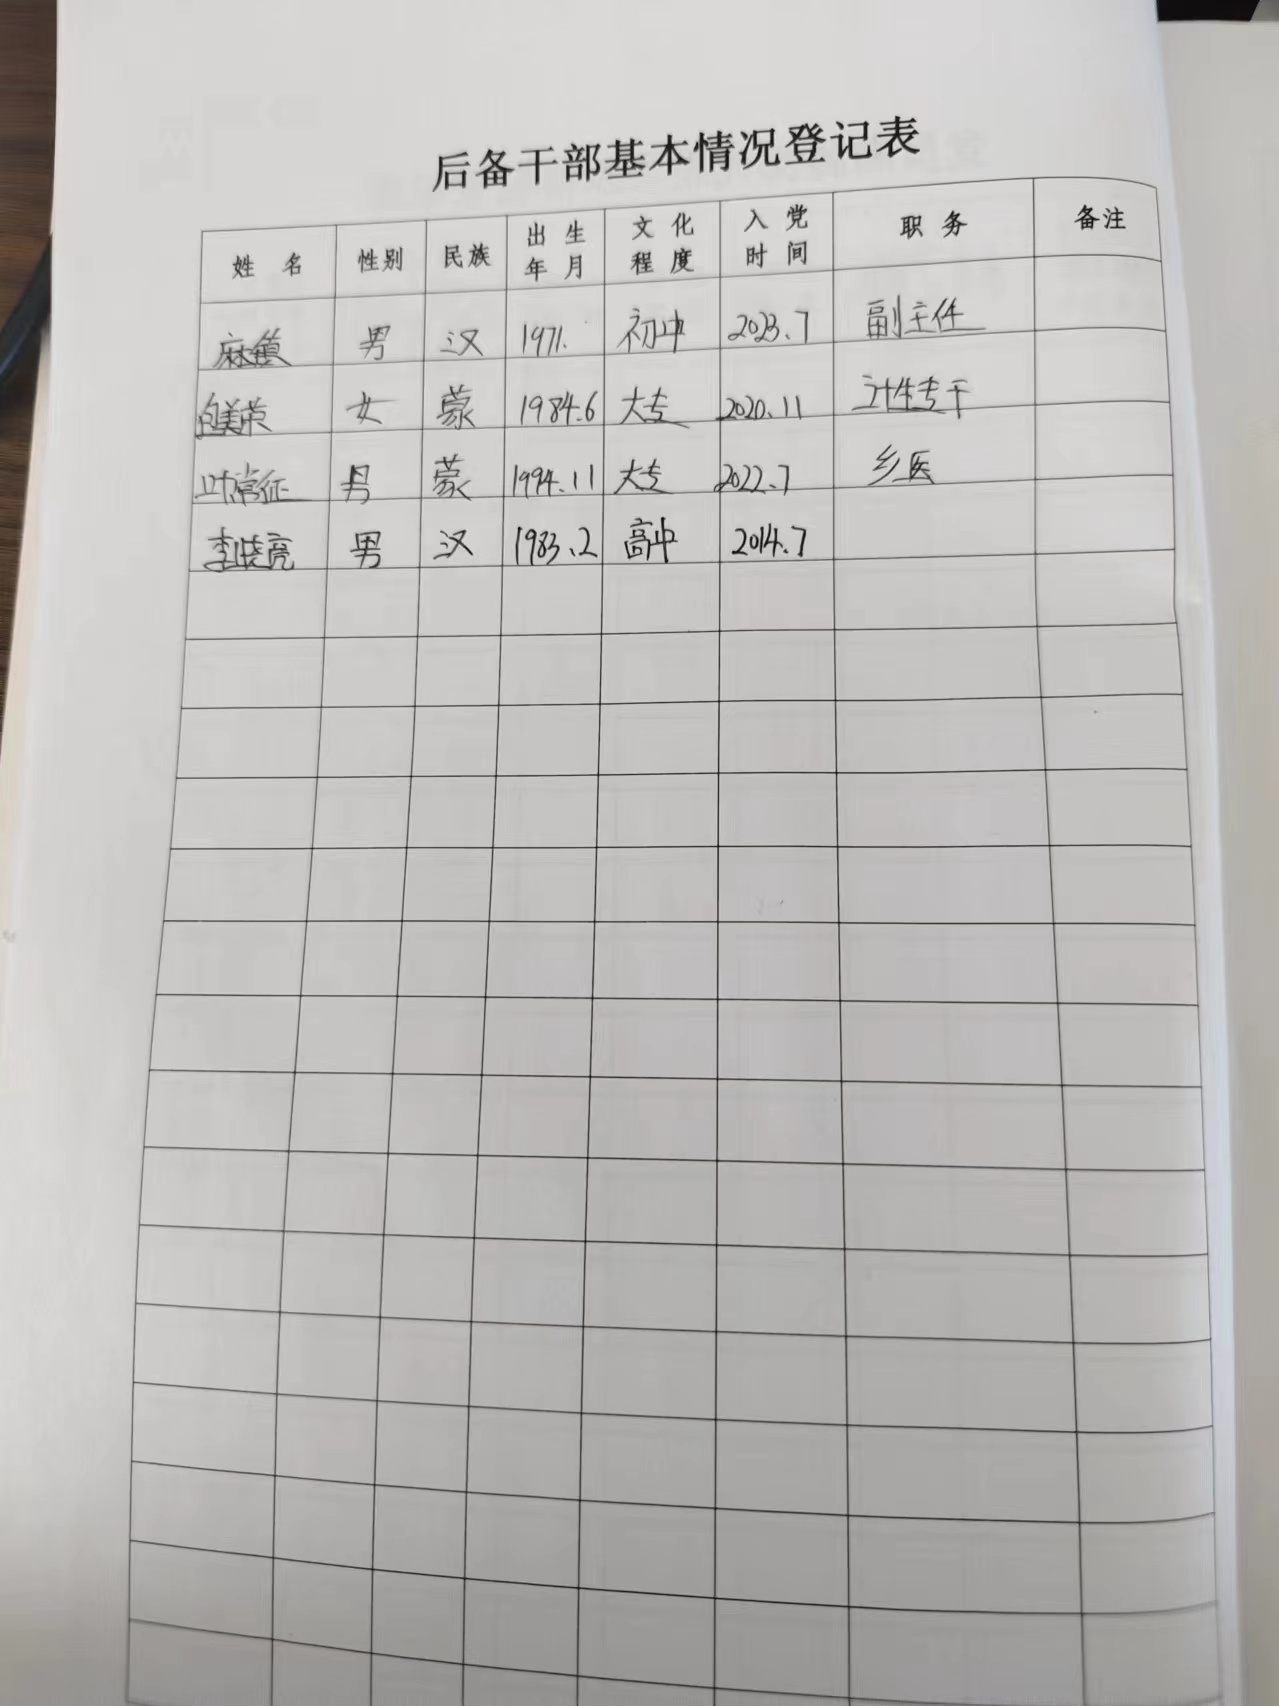 后备干部基本情况登记表
姓 名 性别 民族 出生年月 文化程度 入党时间 职务 备注
麻镇 男 汉 1971. 初中 2023.7 副主任
美荣 女 蒙 1984.6 大专 2020.11 计生专干
叶常征 男 蒙 1994.11 大专 2022.7 乡医
李晓亮 男 汉 1983.2 高中 2014.7